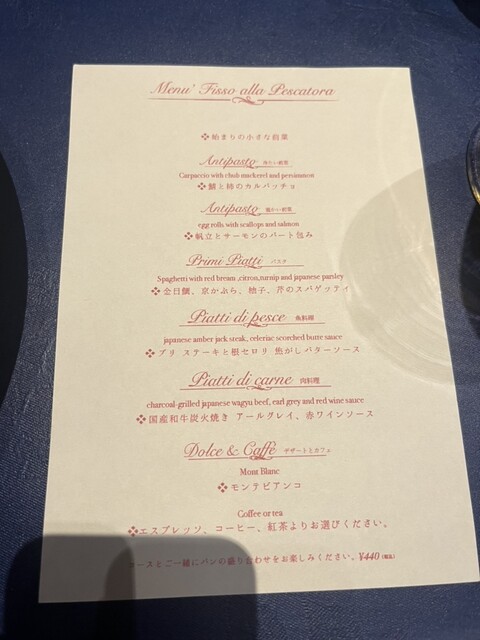 Menu' Fisso alla Pescatora
❖始まりの小さな前菜
Antipasto 冷たい前菜
Carpaccio with chub mackerel and persimmon
❖鯖と柿のカルパッチョ
Antipasto 温かい前菜
egg rolls with scallops and salmon
❖帆立とサーモンのパート包み
Primi Piatti パスタ
Spaghetti with red bream ,citron,turnip and japanese parsley
❖金目鯛、京かぶら、柚子、芹のスパゲッティ
Piatti di pesce 魚料理
japanese amber jack steak, celeriac scorched butte sauce
❖ブリ ステーキと根セロリ 焦がしバターソース
Piatti di carne 肉料理
charcoal-grilled japanese wagyu beef, earl grey and red wine sauce
❖国産和牛炭火焼き アールグレイ、赤ワインソース
Dolce & Caffè デザートとカフェ
Mont Blanc
❖モンテビアンコ
Coffee or tea
❖エスプレッソ、コーヒー、紅茶よりお選びください。
コースとご一緒にパンの盛り合わせをお楽しみください。¥440(税込)